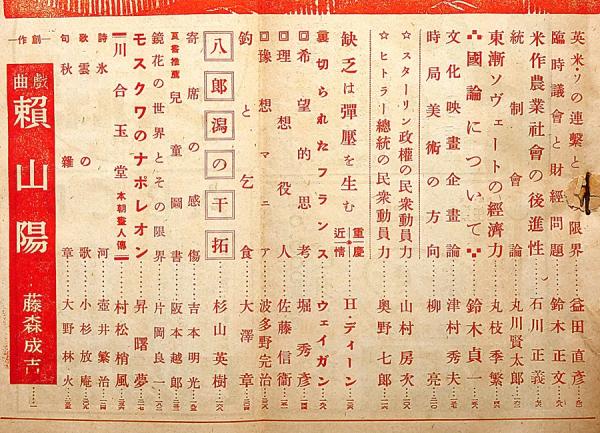 英米・ソの連繫と限界……益田直彦
臨時議會と財經問題……鈴木正文
米作農業社會の後進性……石川正義
統制會論……丸川賢太郎
東漸ソヴェートの經濟力……丸枝季繁
國論について……鈴木貞一
文化映畫企畫論……津村秀夫
時局美術の方向……柳亮
☆スターリン政權の民衆動員力……山村房次
☆ヒトラー總統の民衆動員力……奥野七郎
缺乏は彈壓を生む 重慶近情 H・ディーン
裏切られたフランス ウェイガン
希望的思考……堀秀彦
理想役人……佐藤信衞
豫想マニア……波多野完治
釣と乞食……大澤章
八郎潟の干拓……杉山英樹
寄席の感傷……吉本明光
夏書推薦 兒童圖書……阪本越郎
鏡花の世界とその限界……片岡良一
モスクワのナポレオン……昇曙夢
川合玉堂 本朝畫人傳……村松梢風
詩 氷河……壺井繁治
歌 雲の歌……小杉放庵
句 秋雜章……大野林火
創作
戲曲 賴山陽 藤森成吉